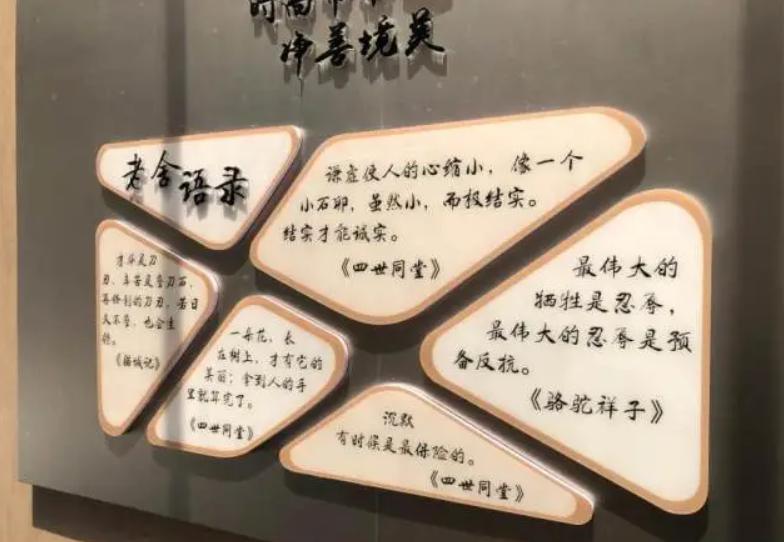 净善境美
老舍语录
谦虚使人的心缩小，像一个
小石卵，虽然小，而极结实。
结实才能诚实。
《四世同堂》
才华是刀
刃，辛苦是磨刀石，
再锋利的刀刃，若日
久不磨，也会生
锈。
《猫城记》
一朵花，长
在树上，才有它的
美丽；拿到人的手
里就算完了。
《四世同堂》
最伟大的
牺牲是忍辱，
最伟大的忍辱是预
备反抗。
《骆驼祥子》
沉默
有时候是最保险的。
《四世同堂》